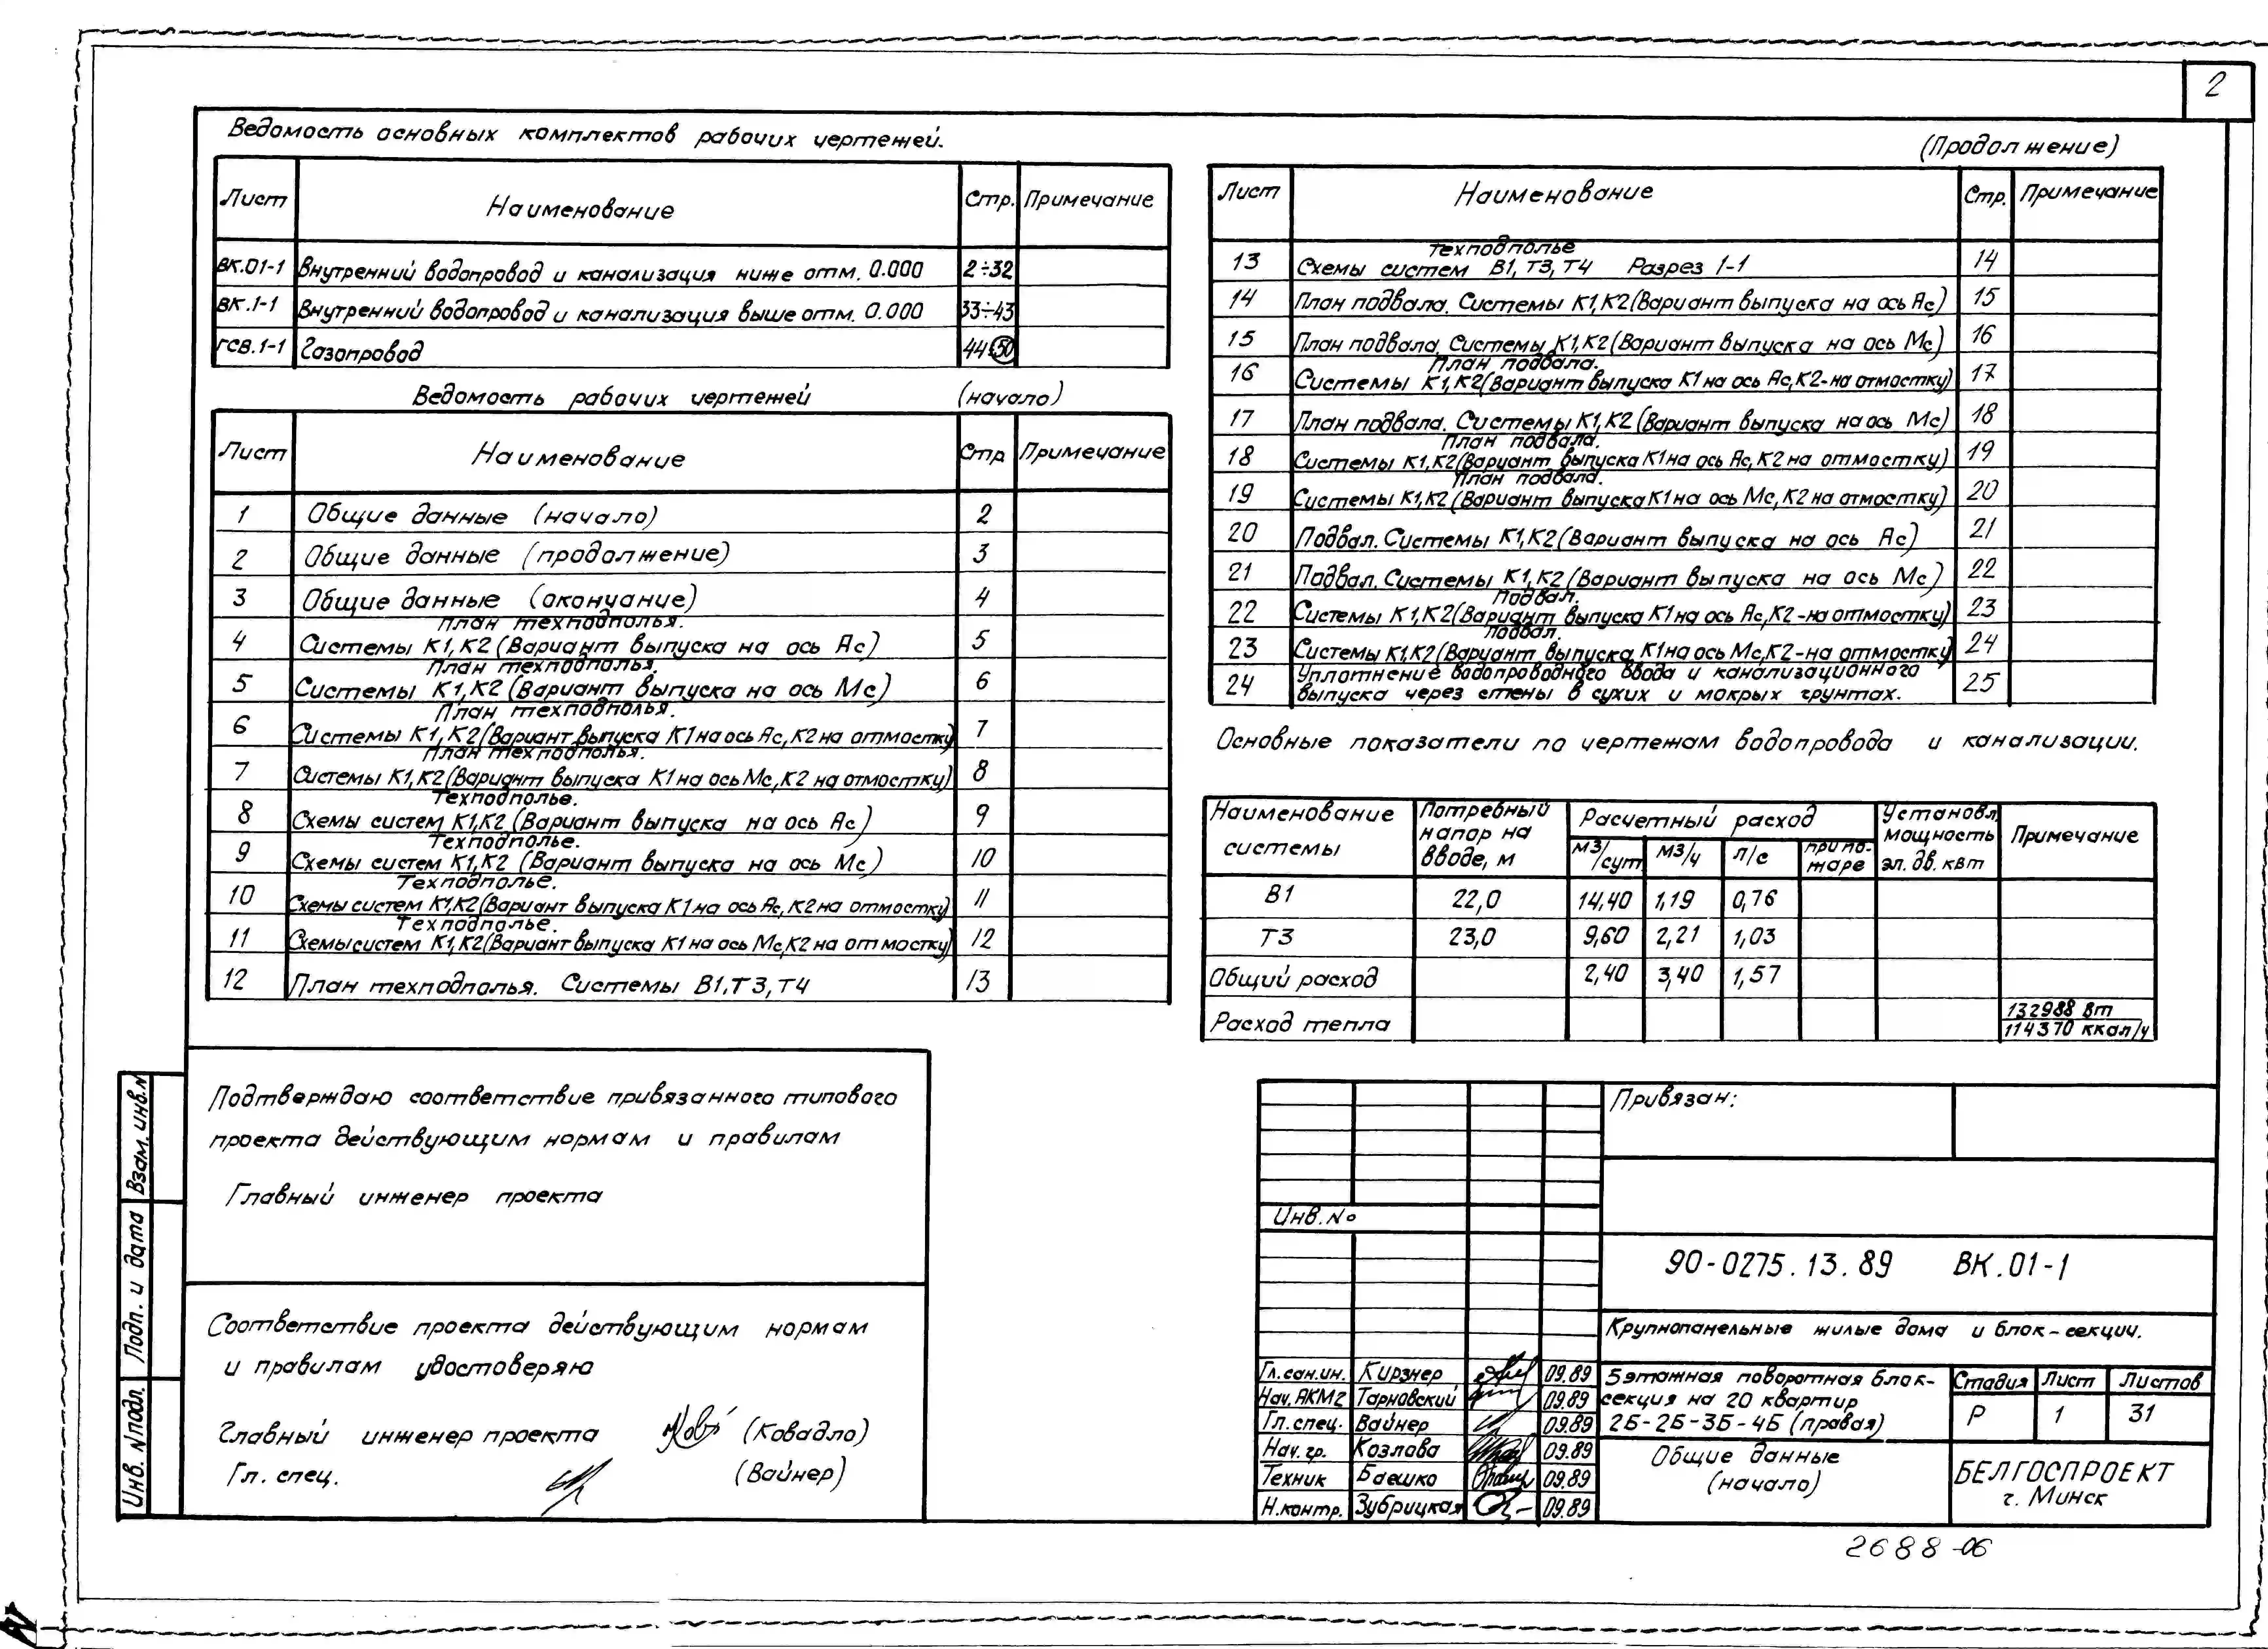 2
Ведомость основных комплектов рабочих чертежей.
Лист Наименование Стр. Примечание
ВК.01-1 Внутренний водопровод и канализация ниже отм. 0.000 2÷32
ВК.1-1 Внутренний водопровод и канализация выше отм. 0.000 33÷43
ГСВ.1-1 Газопровод 44÷50
Ведомость рабочих чертежей (начало)
Лист Наименование Стр Примечание
1 Общие данные (начало) 2
2 Общие данные (продолжение) 3
3 Общие данные (окончание) 4
План техподполья.
4 Системы К1,К2 (Вариант выпуска на ось Ас) 5
План техподполья.
5 Системы К1,К2 (Вариант выпуска на ось Мс) 6
План техподполья.
6 Системы К1,К2 (Вариант выпуска К1 на ось Ас, К2 на отмостку) 7
План техподполья.
7 Системы К1,К2 (Вариант выпуска К1 на ось Мс, К2 на отмостку) 8
Техподполье.
8 Схемы систем К1,К2 (Вариант выпуска на ось Ас) 9
Техподполье.
9 Схемы систем К1,К2 (Вариант выпуска на ось Мс) 10
Техподполье.
10 Схемы систем К1,К2 (Вариант выпуска К1 на ось Ас, К2 на отмостку) 11
Техподполье.
11 Схемы систем К1,К2 (Вариант выпуска К1 на ось Мс, К2 на отмостку) 12
12 План техподполья. Системы В1, Т3, Т4 13
(Продолжение)
Лист Наименование Стр. Примечание
Техподполье
13 Схемы систем В1, Т3, Т4 Разрез 1-1 14
14 План подвала. Системы К1,К2 (Вариант выпуска на ось Ас) 15
15 План подвала. Системы К1,К2 (Вариант выпуска на ось Мс) 16
План подвала.
16 Системы К1,К2 (Вариант выпуска К1 на ось Ас, К2-на отмостку) 17
17 План подвала. Системы К1,К2 (Вариант выпуска на ось Мс) 18
План подвала.
18 Системы К1,К2 (Вариант выпуска К1 на ось Ас, К2 на отмостку) 19
План подвала.
19 Системы К1,К2 (Вариант выпуска К1 на ось Мс, К2 на отмостку) 20
20 Подвал. Системы К1,К2 (Вариант выпуска на ось Ас) 21
21 Подвал. Системы К1,К2 (Вариант выпуска на ось Мс) 22
Подвал.
22 Системы К1,К2 (Вариант выпуска К1 на ось Ас, К2-на отмостку) 23
Подвал.
23 Системы К1,К2 (Вариант выпуска К1 на ось Мс, К2-на отмостку) 24
Уплотнение водопроводного ввода и канализационного
24 выпуска через стены в сухих и мокрых грунтах. 25
Основные показатели по чертежам водопровода и канализации.
Наименование системы Потребный напор на вводе, м Расчетный расход Установл. мощность эл. дв. квт Примечание
м3/сут м3/ч л/с при пожаре
В1 22,0 14,40 1,19 0,76
Т3 23,0 9,60 2,21 1,03
Общий расход 2,40 3,40 1,57
Расход тепла 132988 вт
114370 ккал/ч
Подтверждаю соответствие привязанного типового
проекта действующим нормам и правилам
Главный инженер проекта
Соответствие проекта действующим нормам
и правилам удостоверяю
Главный инженер проекта (Ковадло)
Гл. спец. (Вайнер)
Взам. инв.N
Подп. и дата
Инв. N подл.
Привязан:
Инв. №
90-0275.13.89 ВК.01-1
Крупнопанельные жилые дома и блок-секции.
Гл.сан.ин. Кирзнер 09.89
Нач. АКМ2 Тарновский 09.89
Гл. спец. Вайнер 09.89
Нач. гр. Козлова 09.89
Техник Баешко 09.89
Н.контр. Зубрицкая 09.89
5 этажная поворотная блок-
секция на 20 квартир
2Б-2Б-3Б-4Б (правая)
Стадия Лист Листов
Р 1 31
Общие данные
(начало)
БЕЛГОСПРОЕКТ
г. Минск
2688-06